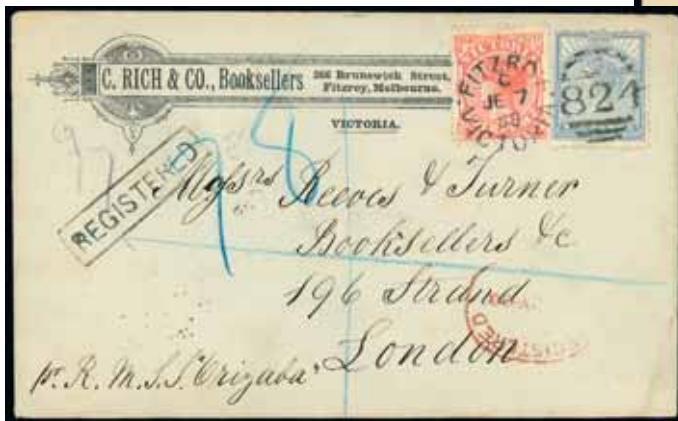 C. RICH & CO., Booksellers
366 Brunswick Street,
Fitzroy, Melbourne.
VICTORIA.
FITZRO
C
JE 7
88
VICTORIA
824
REGISTERED
97
78
Messrs Reeves & Turner
Booksellers &c
196 Strand
London
pr. R. M. S. S. "Orizaba"